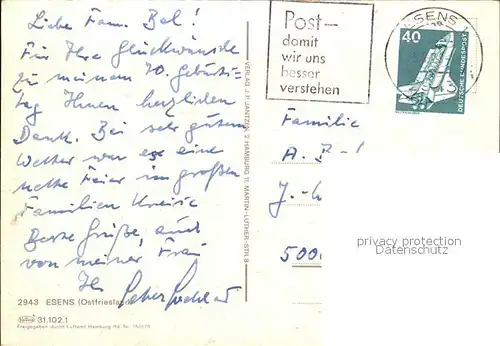 Liebe Fam. Bel!
Für Ihre Glückwünsche
zu meinem 70. Geburts=
tag Ihnen herzlichen
Dank. Bei sehr gutem
Wetter war es eine
nette Feier im großen
Familien Kreise
Beste Grüße, auch
von meiner Frau
Ihr
2943 ESENS (Ostfriesland)
31.102.1
Freigegeben durch Luftamt Hamburg
VERLAG J.P. JANTZEN, 2 HAMBURG 11, MARTIN-LUTHER-STR. 8
Post–
damit
wir uns
besser
verstehen
ESENS
40
DEUTSCHE BUNDESPOST
Familie
A. B
J.
500
privacy protection
Datenschutz